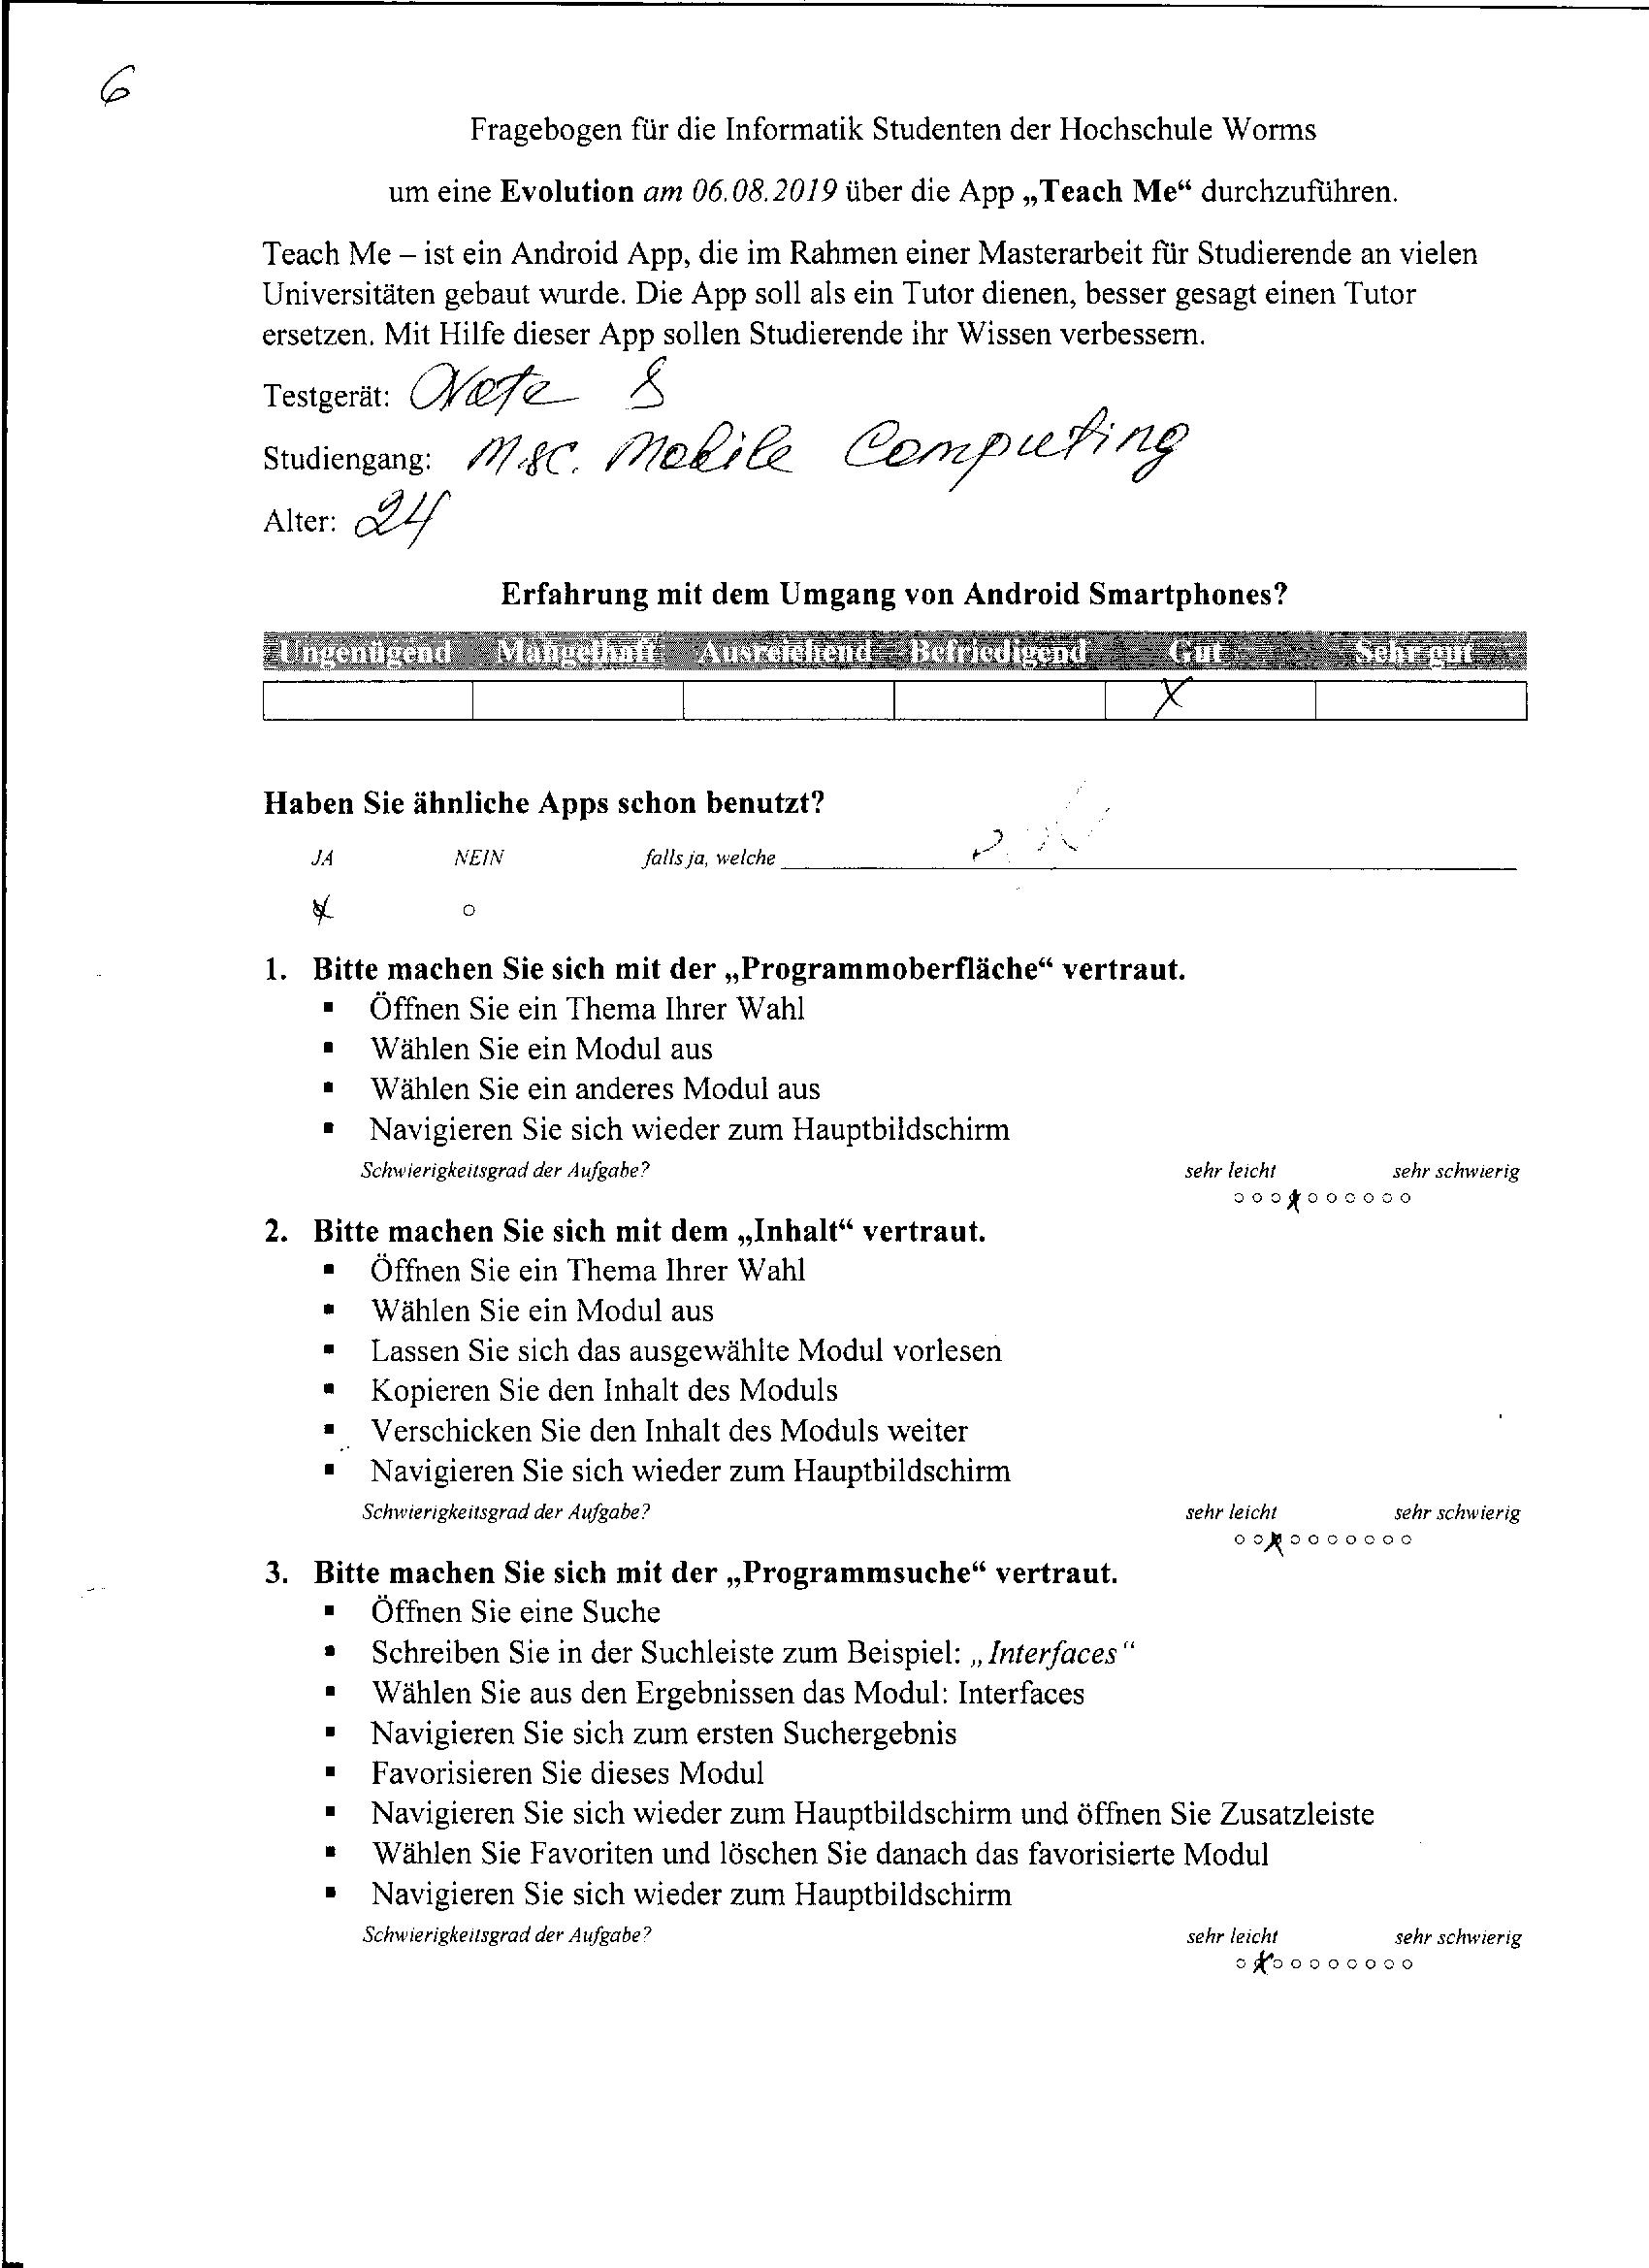 6
Fragebogen für die Informatik Studenten der Hochschule Worms
um eine Evolution am 06.08.2019 über die App „Teach Me“ durchzuführen.
Teach Me – ist ein Android App, die im Rahmen einer Masterarbeit für Studierende an vielen
Universitäten gebaut wurde. Die App soll als ein Tutor dienen, besser gesagt einen Tutor
ersetzen. Mit Hilfe dieser App sollen Studierende ihr Wissen verbessern.
Testgerät: Note 8
Studiengang: M.sc. Mobile Computing
Alter: 24
Erfahrung mit dem Umgang von Android Smartphones?
Ungenügend Mangelhaft Ausreichend Befriedigend Gut Sehr gut
X
Haben Sie ähnliche Apps schon benutzt?
JA NEIN falls ja, welche
1. Bitte machen Sie sich mit der „Programmoberfläche“ vertraut.
▪ Öffnen Sie ein Thema Ihrer Wahl
▪ Wählen Sie ein Modul aus
▪ Wählen Sie ein anderes Modul aus
▪ Navigieren Sie sich wieder zum Hauptbildschirm
Schwierigkeitsgrad der Aufgabe? sehr leicht sehr schwierig
2. Bitte machen Sie sich mit dem „Inhalt“ vertraut.
▪ Öffnen Sie ein Thema Ihrer Wahl
▪ Wählen Sie ein Modul aus
▪ Lassen Sie sich das ausgewählte Modul vorlesen
▪ Kopieren Sie den Inhalt des Moduls
▪ Verschicken Sie den Inhalt des Moduls weiter
▪ Navigieren Sie sich wieder zum Hauptbildschirm
Schwierigkeitsgrad der Aufgabe? sehr leicht sehr schwierig
3. Bitte machen Sie sich mit der „Programmsuche“ vertraut.
▪ Öffnen Sie eine Suche
▪ Schreiben Sie in der Suchleiste zum Beispiel: „Interfaces“
▪ Wählen Sie aus den Ergebnissen das Modul: Interfaces
▪ Navigieren Sie sich zum ersten Suchergebnis
▪ Favorisieren Sie dieses Modul
▪ Navigieren Sie sich wieder zum Hauptbildschirm und öffnen Sie Zusatzleiste
▪ Wählen Sie Favoriten und löschen Sie danach das favorisierte Modul
▪ Navigieren Sie sich wieder zum Hauptbildschirm
Schwierigkeitsgrad der Aufgabe? sehr leicht sehr schwierig